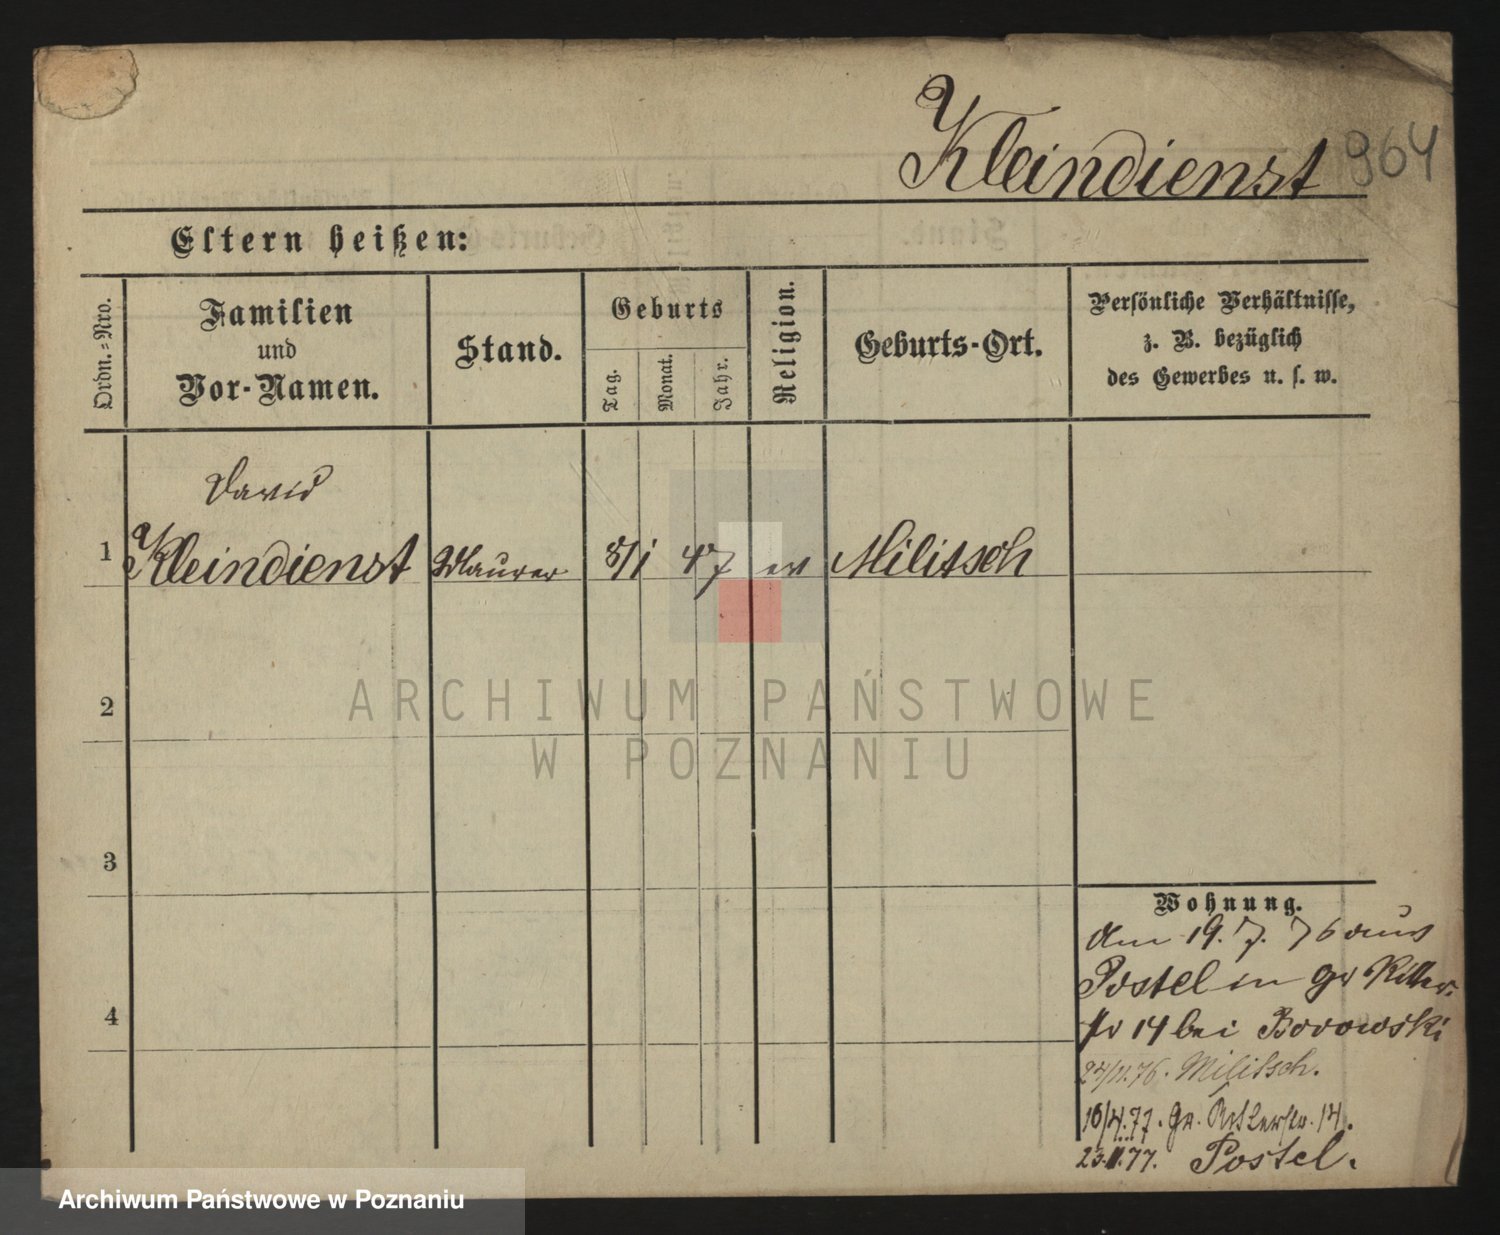 Kleindienst 964
Eltern heißen:
Ordn.-Nro.
Familien
und
Vor-Namen.
Stand.
Geburts
Tag.
Monat.
Jahr.
Religion.
Geburts-Ort.
Persönliche Verhältnisse,
z. B. bezüglich
des Gewerbes u. s. w.
David
1 Kleindienst Maurer 8/1 47 ev Militsch
2
3
4
Wohnung.
Am 19. 7. 76 aus
Postel in gr Ritter-
str 14 bei Borowski
24/11.76. Militsch.
16/4.77. Gr. Ritterstr. 14.
23.11.77. Postel.
ARCHIWUM PAŃSTWOWE
W POZNANIU
Archiwum Państwowe w Poznaniu